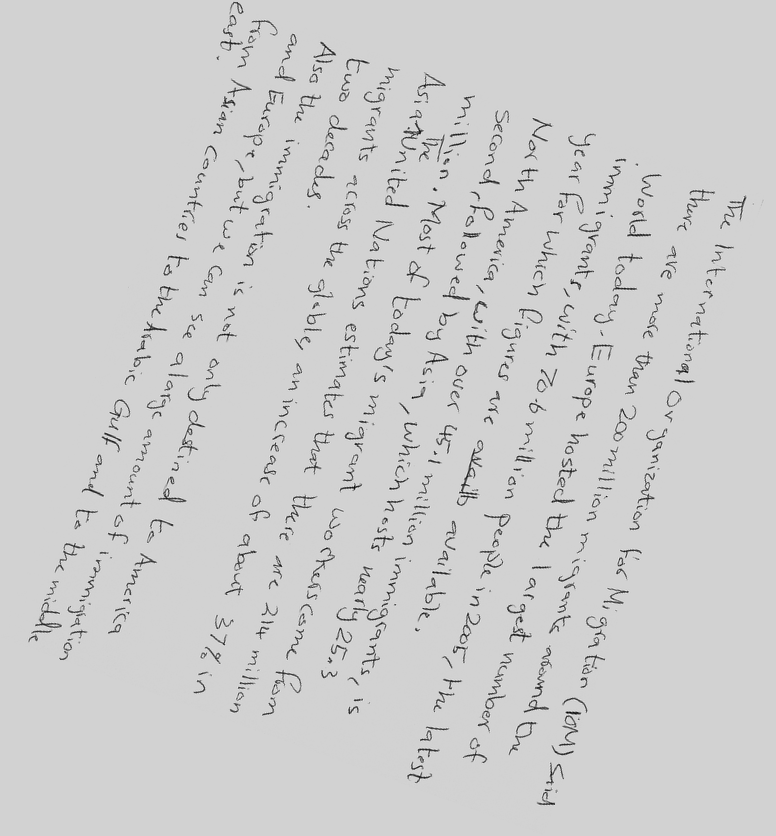 The International Organization for Migration (IOM) said
there are more than 200 million migrants around the
World today. Europe hosted the largest number of
immigrants, with 70.6 million people in 2005, the latest
year for which figures are available.
North America, with over 45.1 million immigrants, is
second, followed by Asia, which hosts nearly 25.3
million. Most of today's migrant workers come from
Asia. The United Nations estimates that there are 214 million
migrants across the globe, an increase of about 37% in
two decades.
Also the immigration is not only destined to America
and Europe, but we can see a large amount of immigration
from Asian Countries to the Arabic Gulf and to the middle
east.